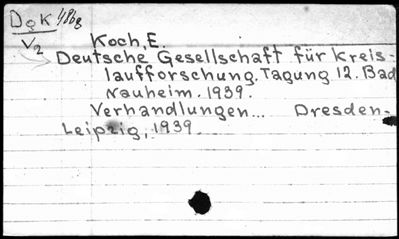 DgK
V2
Koch, E.
Deutsche Gesellschaft für Kreis-
laufforschung. Tagung 12. Bad
Nauheim. 1939.
Verhandlungen... Dresden-
Leipzig, 1939.